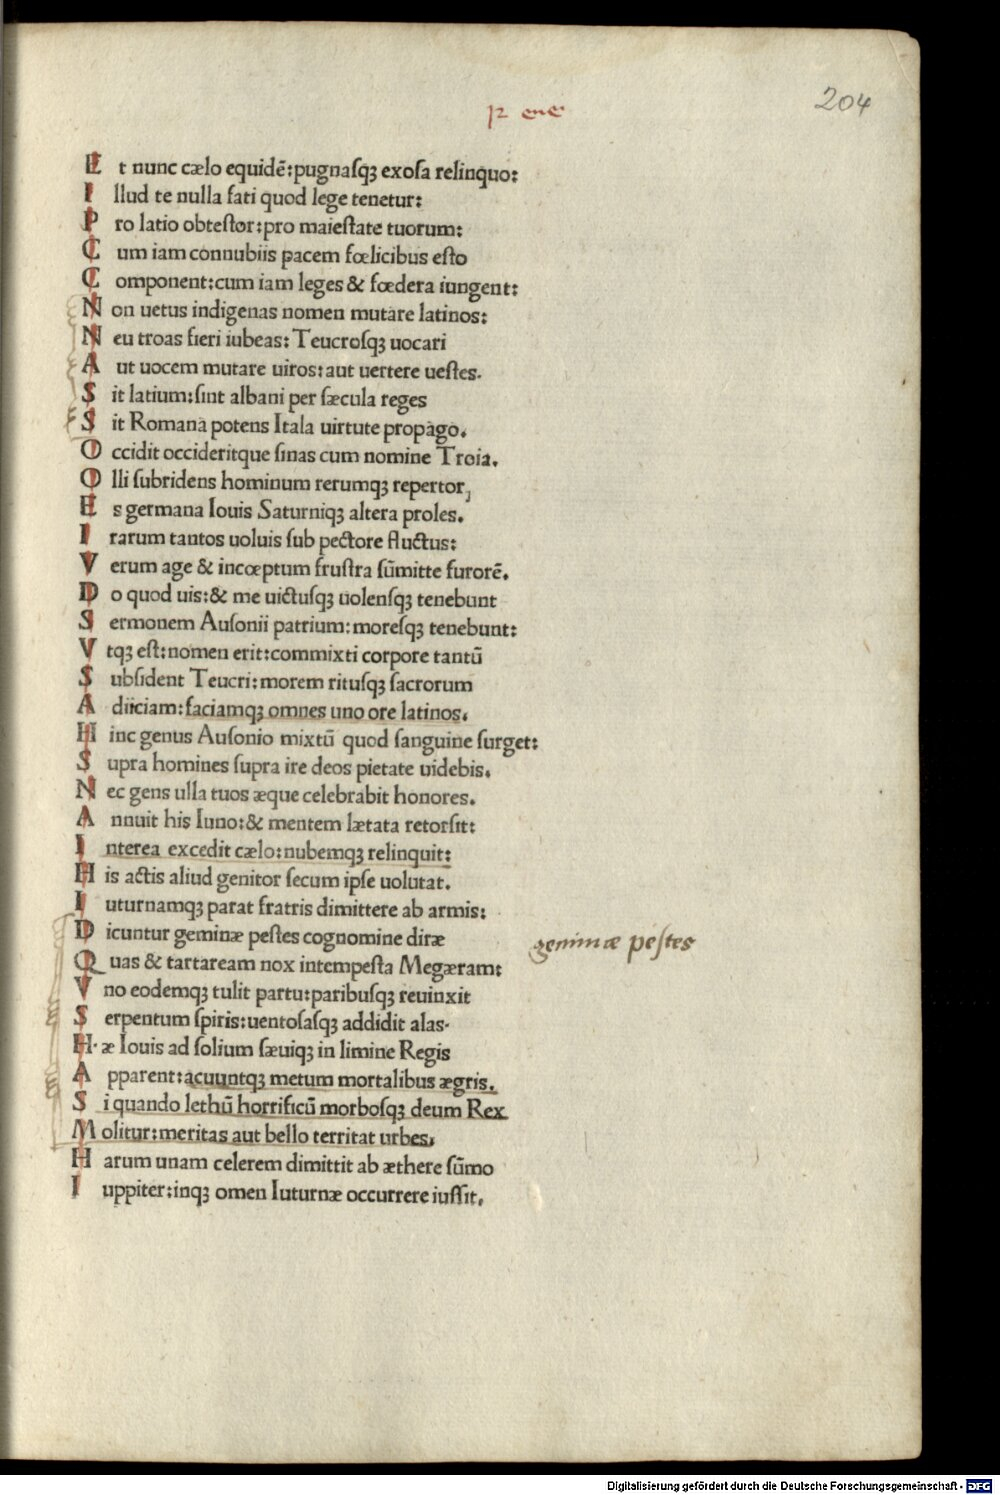 204
12 ene
Et nunc cælo equidē:pugnaſqꝫ exoſa relinquo:
Illud te nulla fati quod lege tenetur:
Pro latio obteſtor:pro maieſtate tuorum:
Cum iam connubiis pacem fœlicibus eſto
Component:cum iam leges & fœdera iungent:
Non uetus indigenas nomen mutare latinos:
Neu troas fieri iubeas: Teucroſqꝫ uocari
Aut uocem mutare uiros:aut uertere ueſtes.
Sit latium:ſint albani per ſæcula reges
Sit Romana potens Itala uirtute propago.
Occidit occideritque ſinas cum nomine Troia.
Olli ſubridens hominum rerumqꝫ repertor,
Es germana Iouis Saturniqꝫ altera proles.
Irarum tantos uoluis ſub pectore fluctus:
Verum age & incœptum fruſtra ſūmitte furorē.
Do quod uis:& me uictuſqꝫ uolenſqꝫ tenebunt
Sermonem Auſonii patrium:moreſqꝫ tenebunt:
Vtqꝫ eſt:nomen erit:commixti corpore tantū
Subſident Teucri:morem rituſqꝫ ſacrorum
Adiiciam:faciamqꝫ omnes uno ore latinos.
Hinc genus Auſonio mixtū quod ſanguine ſurget:
Supra homines ſupra ire deos pietate uidebis.
Nec gens ulla tuos æque celebrabit honores.
Annuit his Iuno:& mentem lætata retorſit:
Interea excedit cælo:nubemqꝫ relinquit:
His actis aliud genitor ſecum ipſe uolutat.
Iuturnamqꝫ parat fratris dimittere ab armis:
Dicuntur geminæ peſtes cognomine diræ
geminæ peſtes
Quas & tartaream nox intempeſta Megæram:
Vno eodemqꝫ tulit partu:paribuſqꝫ reuinxit
Serpentum ſpiris:uentoſaſqꝫ addidit alas.
H.æ Iouis ad ſolium ſæuiqꝫ in limine Regis
Apparent:acuuntqꝫ metum mortalibus ægris.
Si quando lethū horrificū morboſqꝫ deum Rex
Molitur:meritas aut bello territat urbes,
Harum unam celerem dimittit ab æthere ſūmo
Iuppiter:inqꝫ omen Iuturnæ occurrere iuſſit.
Digitalisierung gefördert durch die Deutsche Forschungsgemeinschaft - DFG